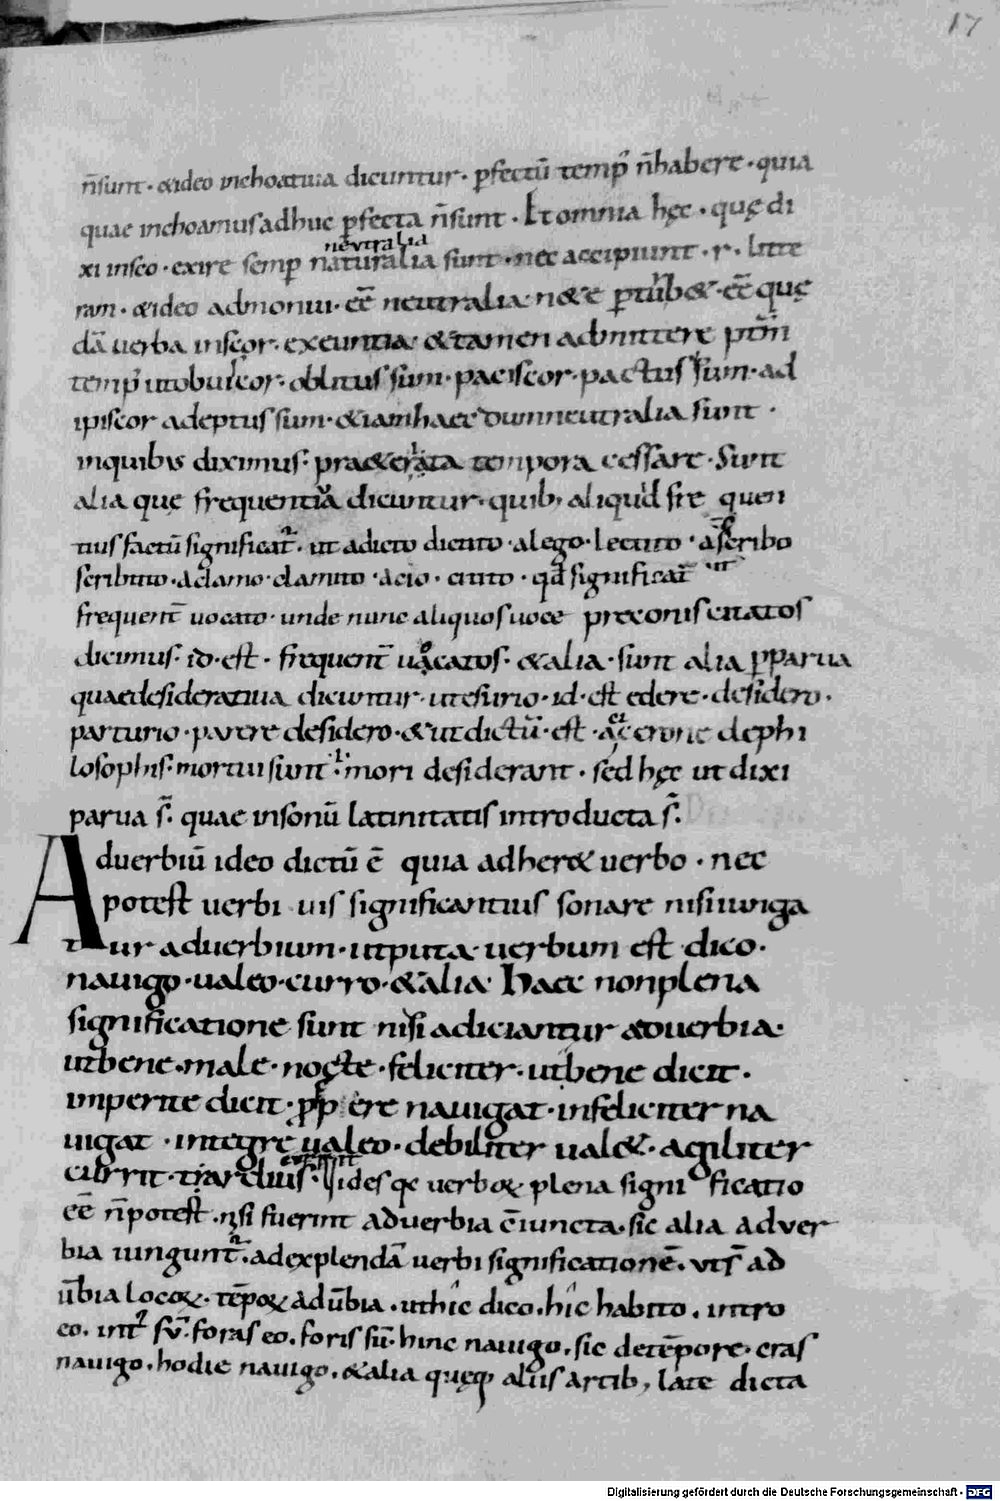 17
n̄sunt · &ideo inchoatiua dicuntur · ꝑfectū temp̄ n̄habere · quia
quae inchoamus adhuc ꝑfecta n̄sunt · Et omnia hęc · quę di
neutralia
xi insco · exire semꝑ naturalia sunt · nec accipiunt · r · litte
ram · &ideo admonui · eē neutralia · &
quę
dā uerba inscor · exeuntia · &tamen admittere
temp̄ utobuiscor · oblitus sum · paciscor · pactus sum · ad
ipiscor adeptus sum · &iamhaec dumneutralia sunt ·
inquibus diximus · pra&erita tempora cessare · Sunt
alia que frequentiua dicuntur · quib; aliquid fre quen
tius factū significat̄ · ut adicto dictito · alego · lectito · ascribo
scribtito · aclamo · clamito · acio · cito · qd̄ significat̄ ut
frequent̄ uocato · unde nunc aliquos uoce preconis citatos
dicimus · id · est · frequent̄ uocatos · &alia · sunt alia ꝑparua
quaedesideratiua dicuntur · utesurio · id · est edere · desidero ·
parturio · parere desidero · &ut dictū · est · acicerone dephi
losophis · mortui sunt · mori desiderant · sed hęc ut dixi
parua s̄ · quae insonū latinitatis introducta s̄ ·
Aduerbiū ideo dictū ē quia adher& uerbo · nec
potest uerbi uis significantius sonare nisi iunga
tur aduerbium · utputa · uerbum est dico ·
nauigo · ualeo · curro · &alia · Haec nonplena
significatione sunt nisi adiciantur aduerbia ·
utbene · male · nocte · feliciter · utbene dicit ·
imperite dicit · prospere nauigat · infeliciter na
uigat · integre ualeo · debiliter ual& · agiliter
currit · tarde · uerboꝝ plena signi ficatio
eē n̄potest · nisi fuerint aduerbia c̄iuncta · sic̄ alia aduer
bia iungunt̄ · adexplendā uerbi significationē · ut s̄ ad
ūbia locoꝝ · tēpoꝝ adūbia · uthic dico · hic habito · intro
eo · int̄ sū · foras eo · foris sū · hinc nauigo · sic detēpore · cras
nauigo · hodie nauigo · &alia quęq; aliis artib; late dicta
Digitalisierung gefördert durch die Deutsche Forschungsgemeinschaft - DFG